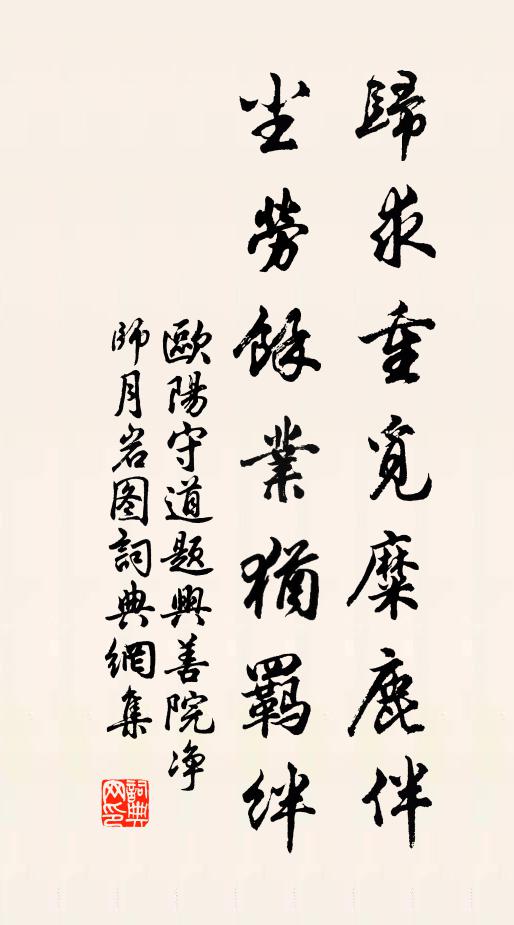 歸求重覓糜鹿伴
坐勞餘業猶羈絆
歐陽守道題興善院净
師月岩图詞典網集
詞典网印